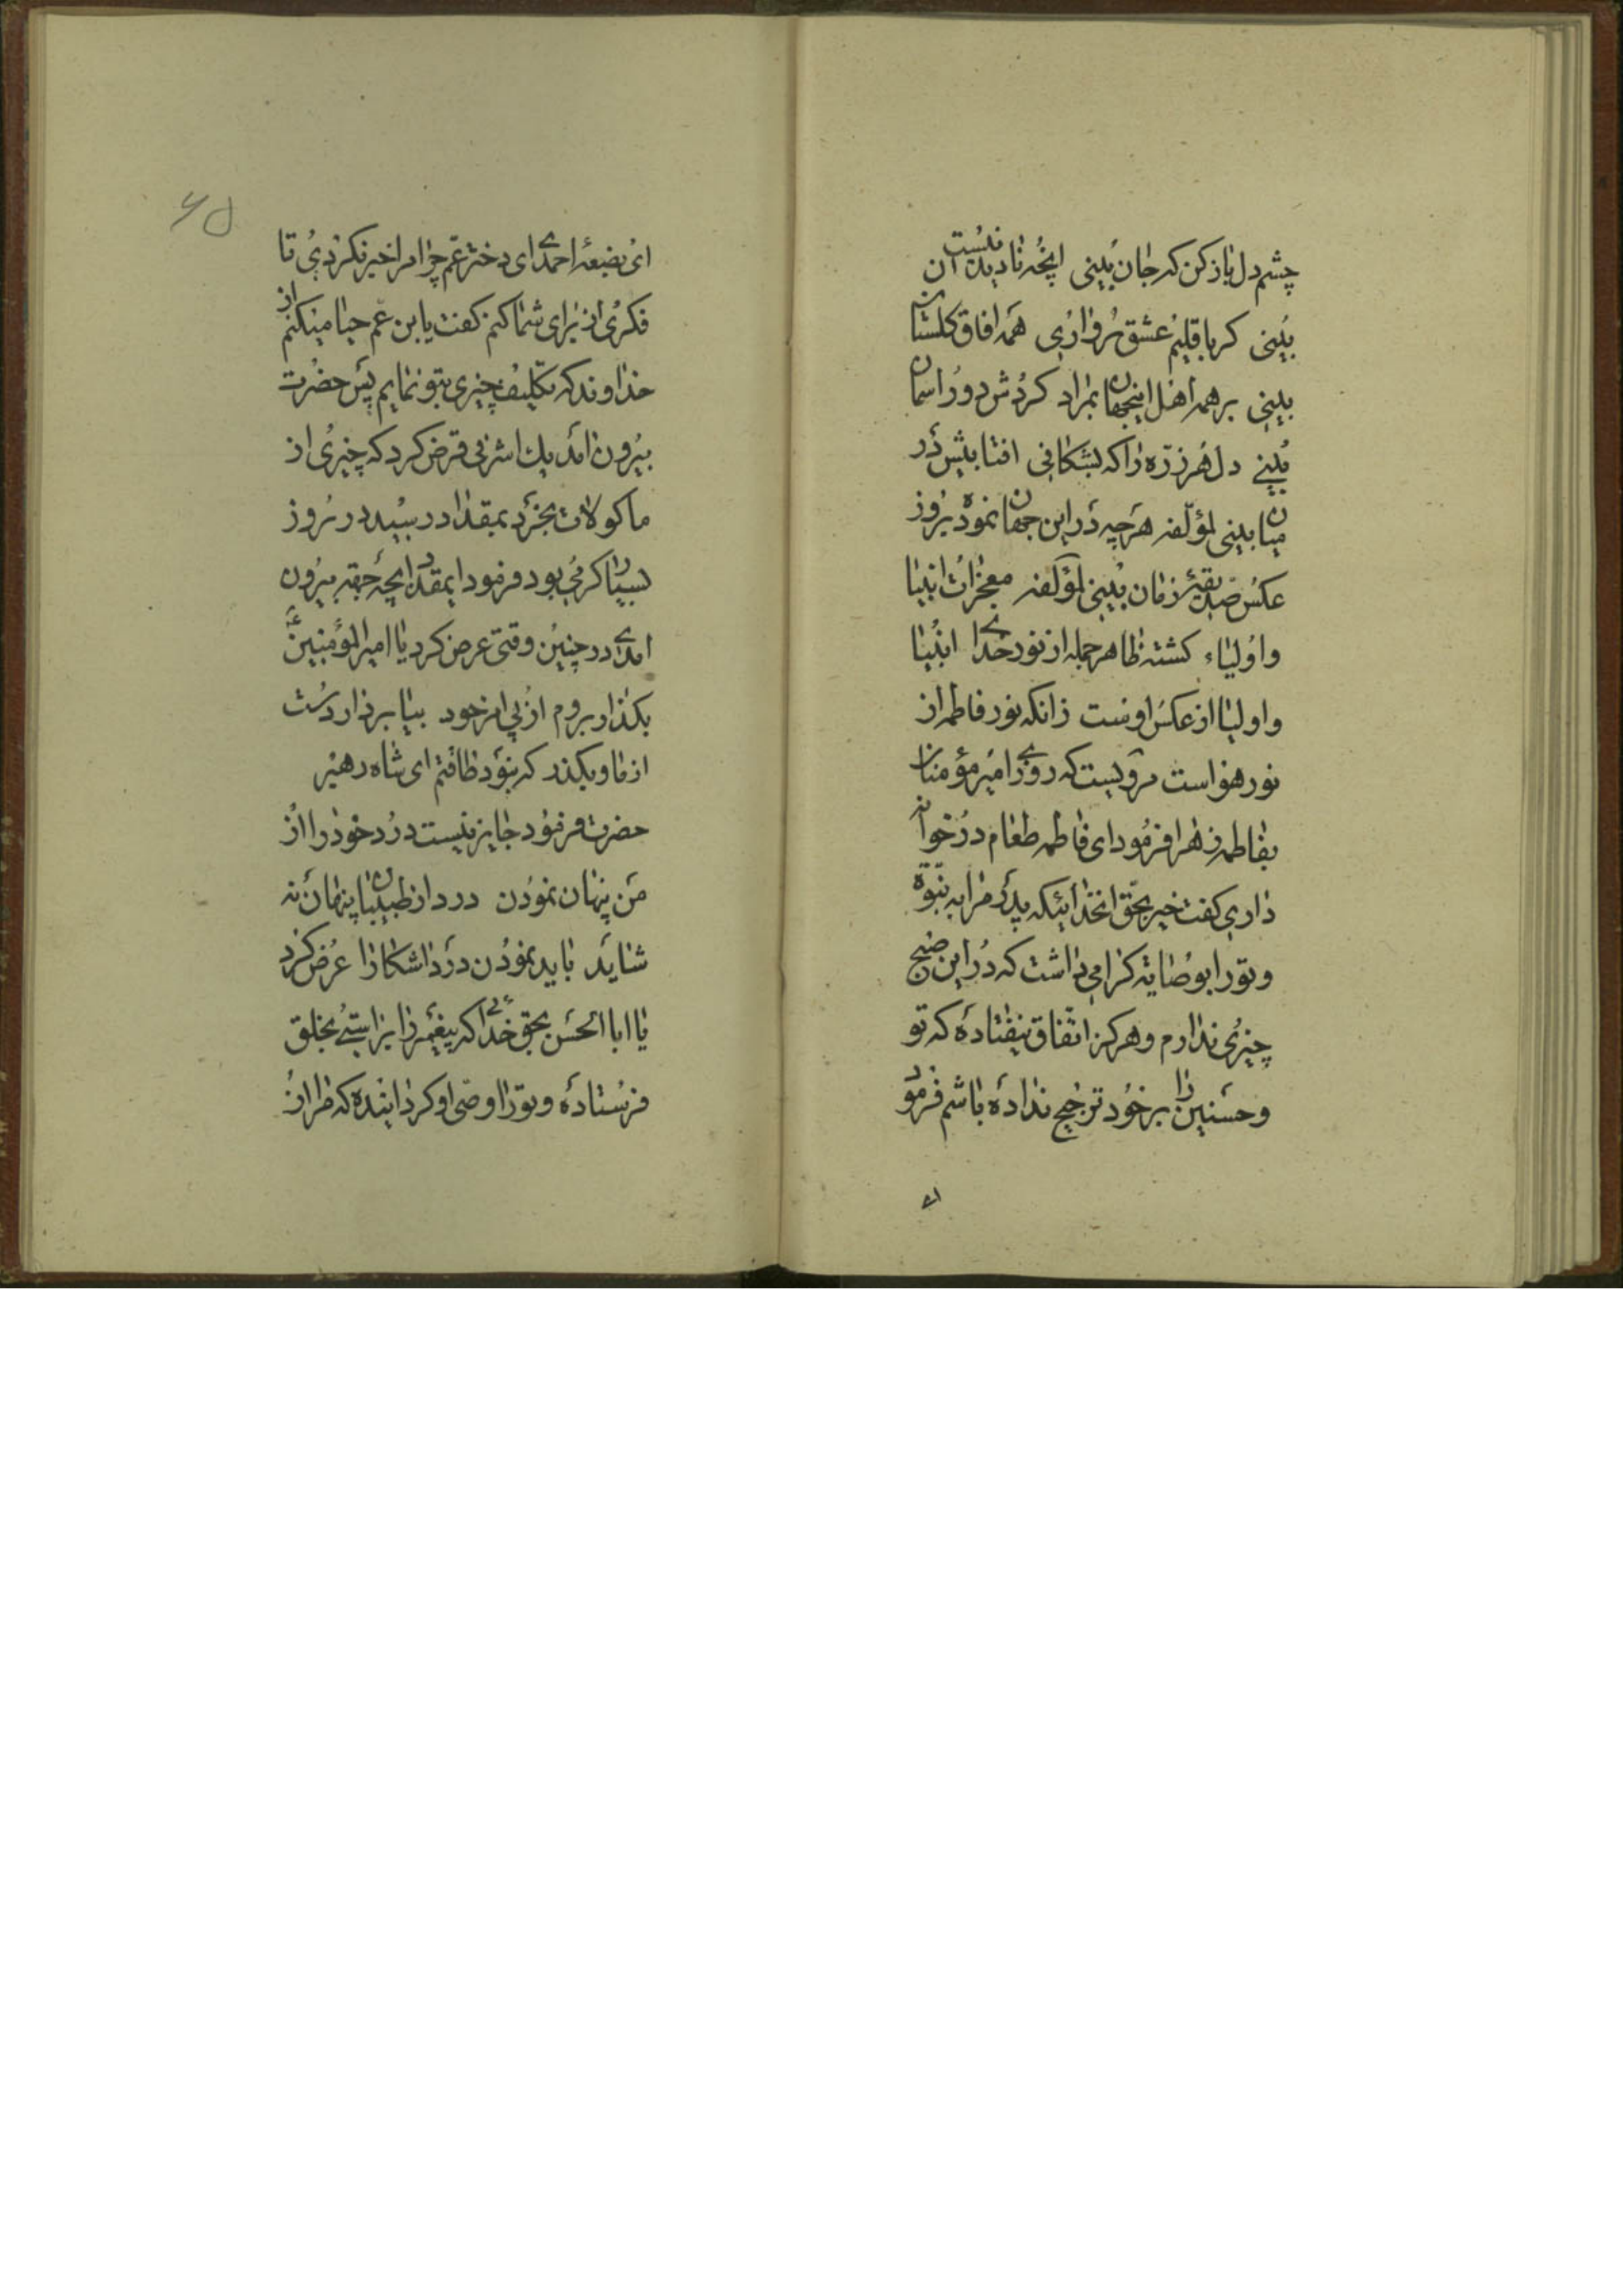 چشم دل باز کن که جان بینی انچه نادیدنیست ان
بینی کر باقلیم عشق رو اری همه افاق کلستان
بینی بر همه اهل اینجهان بمراد کردش دور اسمان
بینی دل هر ذره را که بشکافی افتابیش در
میان بینی لمؤلفه هر چه در این جهان نموده بروز
عکس صدیقه زمان بینی لمؤلفه معجزات انبیا
و اولیاء کشته ظاهر جمله از نور خدا انبیا
و اولیا از عکس اوست زانکه نور فاطمه از
نور هو است مرویست که روزی امیر مؤمنان
بفاطمه زهرا فرمود ای فاطمه طعام در خوانه
داری کفت خیر بحق انخدائیکه پدرم را به نبوة
و تو را بوصایة کرامی داشت که در این صبح
چیزی ندارم و هرکز اتفاق نیفتاده که تو
و حسنین را بر خود ترجیح نداده باشم فرمود
ای
۶۵
ای بضعه احمدی ای دختر عم چرا مرا خبر نکردی تا
فکری از برای شما کنم کفت یابن عم حیا میکنم از
خداوند که تکلیف چیزی بتو نمایم پس حضرت
بیرون امد یک اشرفی قرض کرد که چیزی از
ماکولات بخرد بمقداد رسید در روز
بسیار کرمی بود فرمود ایمقداد ایچه حقه بیرون
امدی در چنین وقتی عرض کرد یا امیر المؤمنین
بکذار بروم از پی امر خود بیا بردار دست
از ما و بکذر که نبود طاقتم ای شاه رهبر
حضرت فرمود جایز نیست درد خود را از
من پنهان نمودن درد از طبیبان پنهان نه
شاید باید نمودن درد اشکارا عرض کرد
یا ابا الحسن بحق خدائی که پیغمبر را براستی بخلق
فرستاده و تو را وصی او کردانیده که مرا از